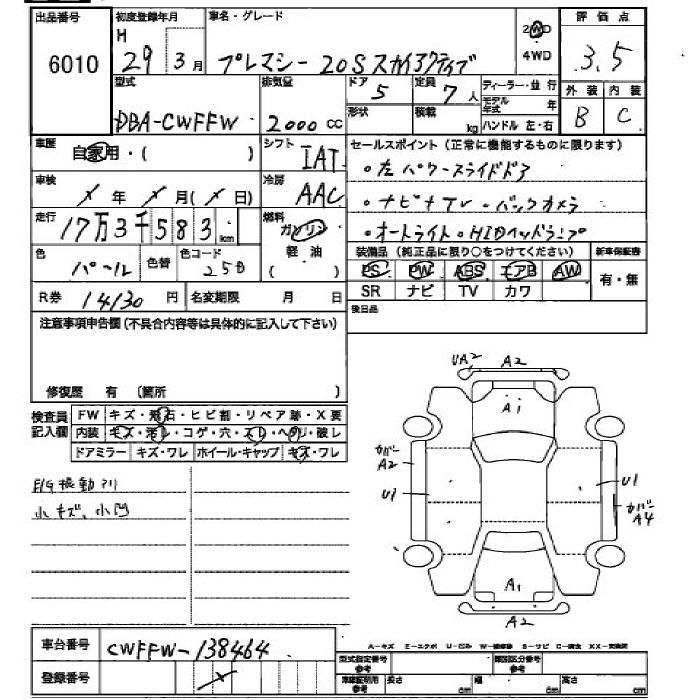 出品番号 初度登録年月 車名・グレード 評価点
6010 H 29 3月 プレマシー 20S スカイアクティブ 2WD 4WD 3.5
型式 排気量 ドア 5 定員 7人 ディーラー・並行 外装 内装
DBA-CWFFW 2000 cc 形状 積載 kg モデル年式 年 ハンドル 左・右 B C
車歴 自家用・( ) シフト IAT セールスポイント(正常に機能するものに限ります)
・左パワースライドドア
車検 年 月( 日) 冷房 AAC ・ナビ+TV・バックカメラ
走行 17万3千583km 燃料 ガソリン 軽油 ( ) ・オートライト・HIDヘッドランプ
色 パール 色替 色コード 25D 装備品(純正品に限り○をつけてください) 新車保証書
PS PW ABS エアB AW 有・無
R券 14130円 名変期限 月 日 SR ナビ TV カワ
注意事項申告欄(不具合内容等は具体的に記入して下さい) 後日品
修復歴 有 (箇所 )
検査員記入欄 FW キズ・飛石・ヒビ割・リペア跡・X要
内装 キズ・汚れ・コゲ・穴・スレ・ヘタリ・破レ
ドアミラー キズ・ワレ ホイール・キャップ キズ・ワレ
E/G振動アリ
小キズ、小凹
UA2 A2
A1
カバー A2
U1 U1
カバー A4
A1
A2
車台番号 CWFFW-138464
A-キズ E-エクボ U-凹み W-補修跡 S-サビ C-腐食 XX-交換済
登録番号 型式指定番号 参考 類別区分番号 参考
車検証明用 参考 長さ cm 幅 cm 高さ cm